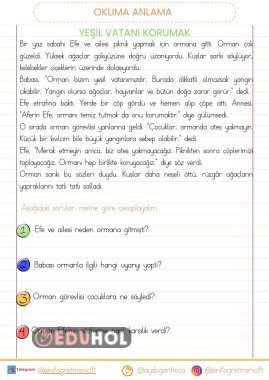 OKUMA ANLAMA
YEŞİL VATANI KORUMAK
Bir yaz sabahı Efe ve ailesi piknik yapmak için ormana gitti. Orman çok
güzeldi. Yüksek ağaçlar gökyüzüne doğru uzanıyordu. Kuşlar şarkı söylüyor,
kelebekler çiçeklerin üzerinde dolaşıyordu.
Babası, "Orman bizim yeşil vatanımızdır. Burada dikkatli olmazsak yangın
çıkabilir. Yangın olursa ağaçlar, hayvanlar ve bütün doğa zarar görür." dedi.
Efe etrafına baktı. Yerde bir çöp gördü ve hemen alıp çöpe attı. Annesi,
"Aferin Efe, ormanı temiz tutmak da onu korumaktır." diye gülümsedi.
O sırada orman görevlisi yanlarına geldi. "Çocuklar, ormanda ateş yakmayın.
Küçük bir kıvılcım bile büyük yangınlara sebep olabilir." dedi.
Efe, "Merak etmeyin amca, biz ateş yakmayacağız. Piknikten sonra çöplerimizi
toplayacağız. Ormanı hep birlikte koruyacağız." diye söz verdi.
Orman sanki bu sözleri duydu. Kuşlar daha neşeli öttü, rüzgâr ağaçların
yapraklarını tatlı tatlı salladı.
Aşağıdaki soruları metne göre cevaplayalım.
1 Efe ve ailesi neden ormana gitmişti?
2 Babası ormanla ilgili hangi uyarıyı yaptı?
3 Orman görevlisi çocuklara ne söyledi?
4 Orman Efe'nin sözlerine nasıl karşılık verdi?
EDUHOL
Telegram @sinifogretmenicft
@aydoganhoca
@sinifogretmenicft